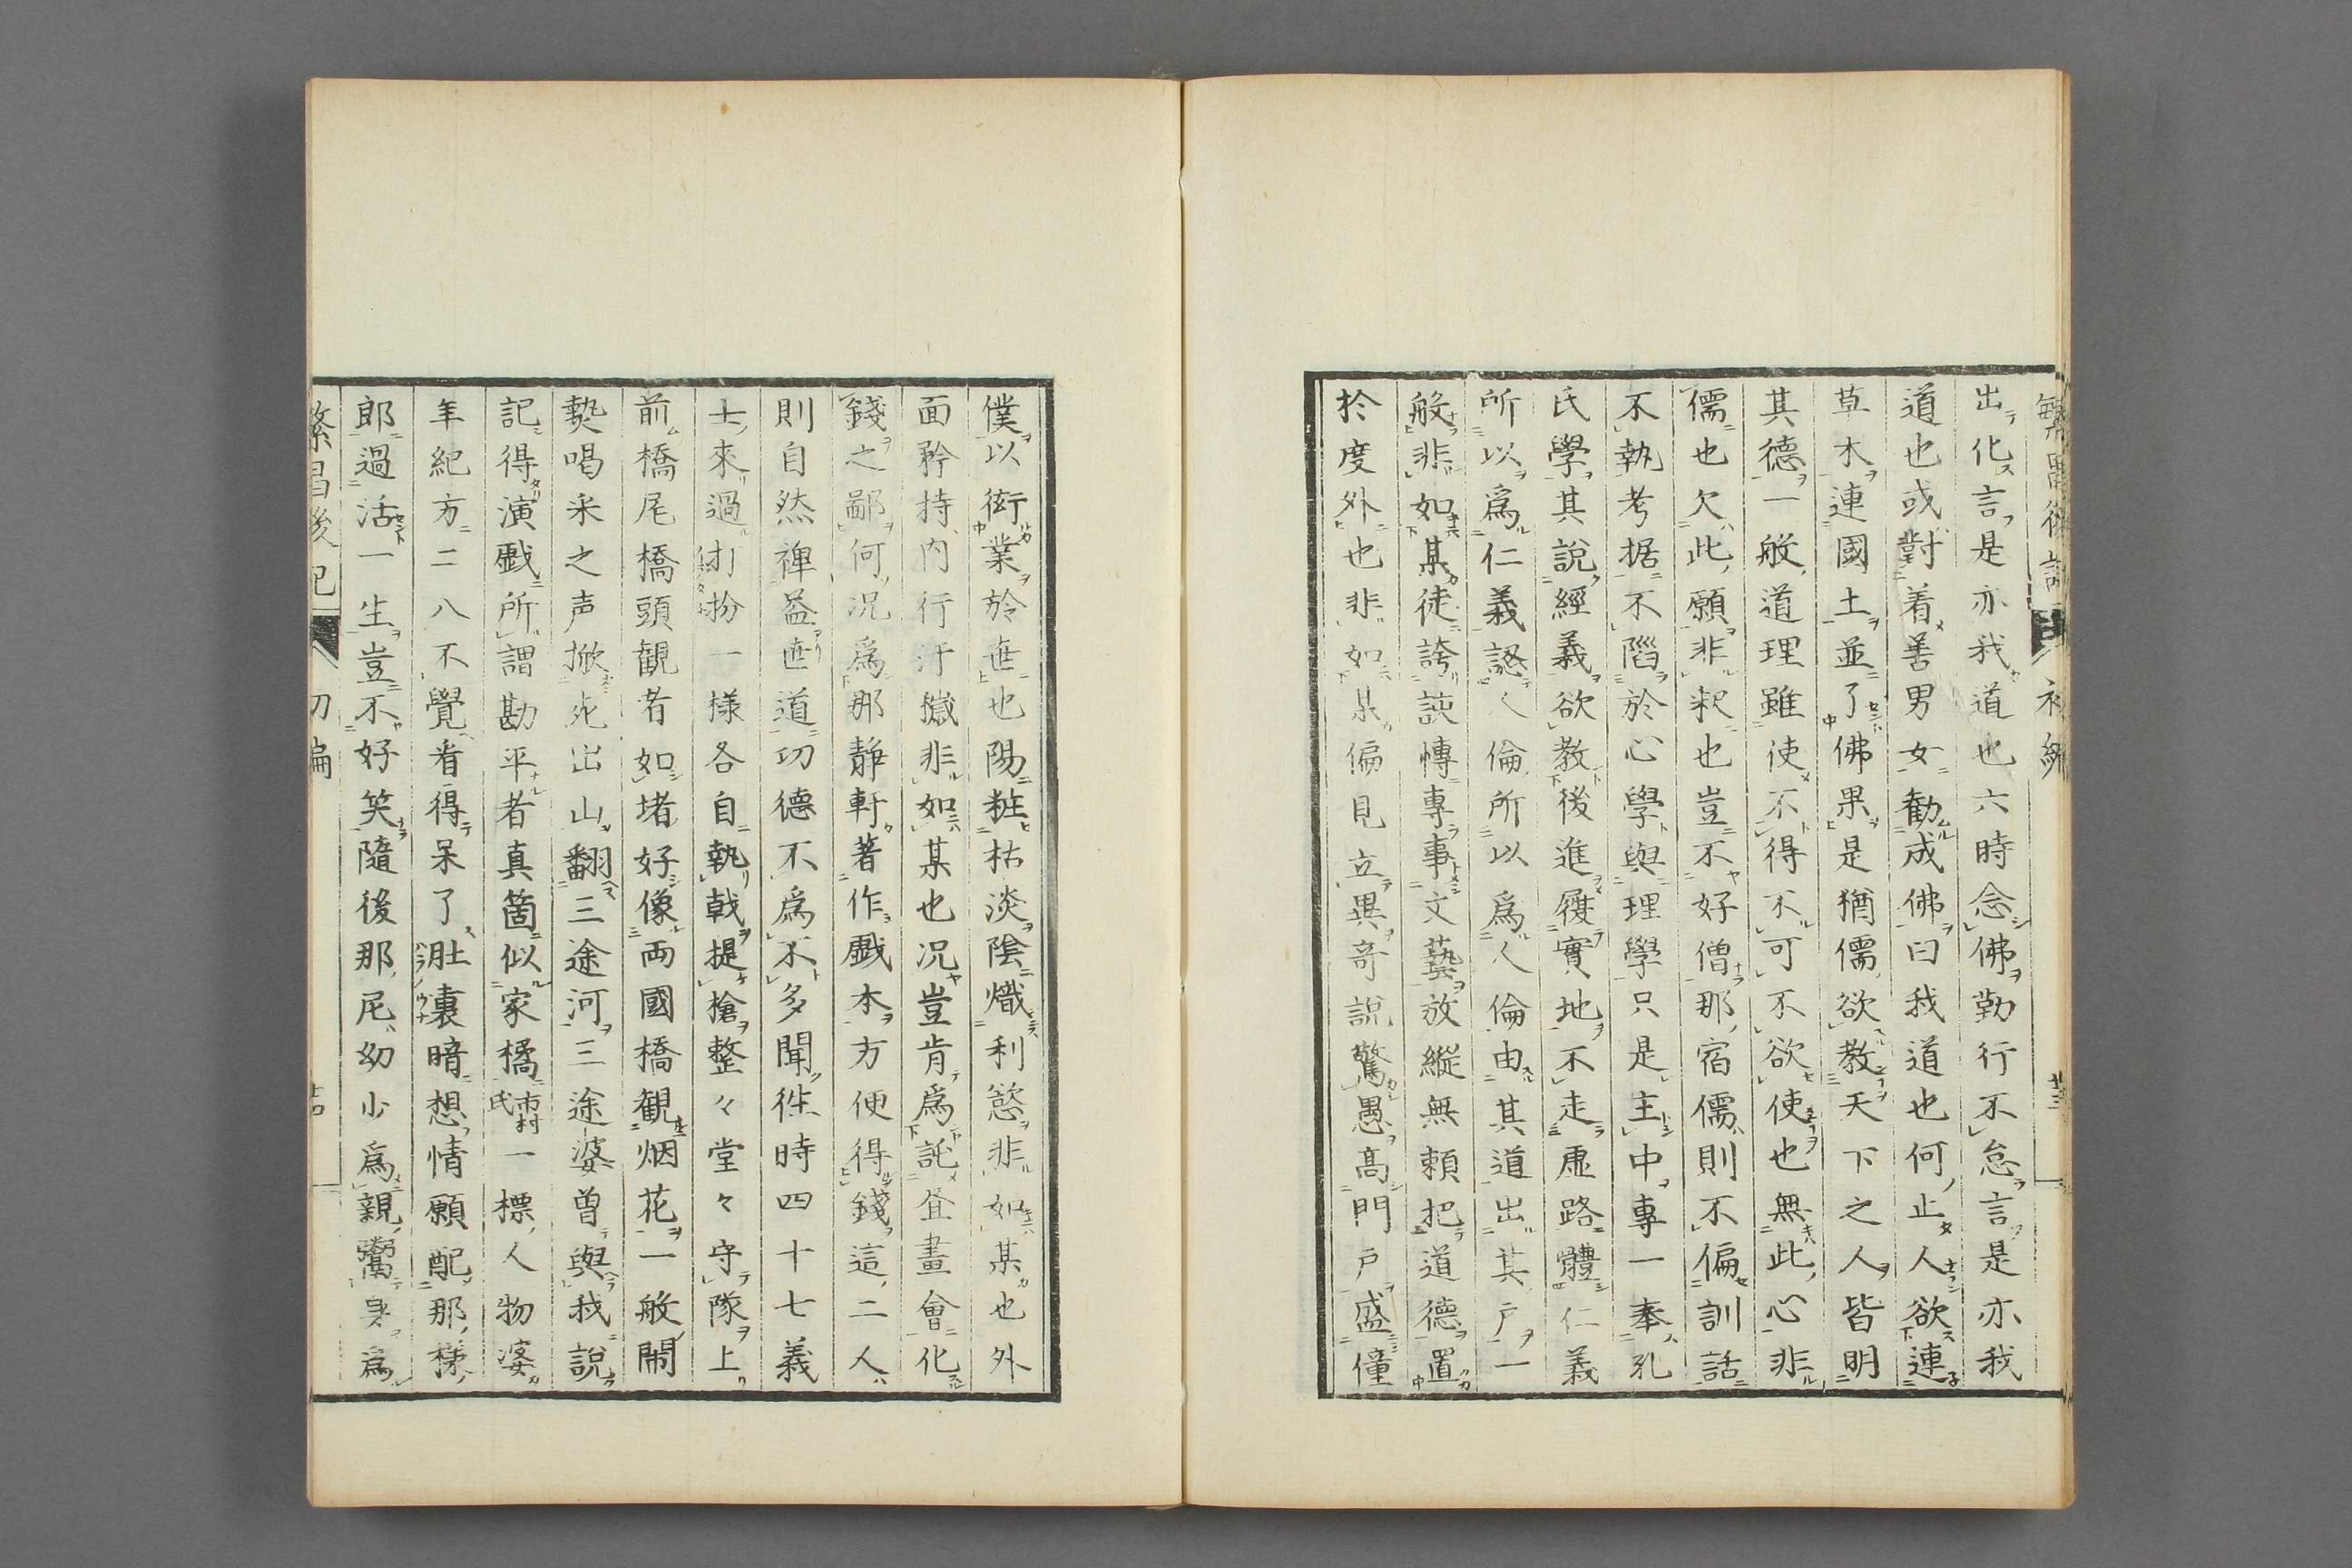 出化言是亦我道也六時念佛勤行不怠言是亦我
道也或對着善男女勸成佛曰我道也何止人欲連
草木連國土並了佛果是猶儒欲教天下之人皆明
其德一般道理雖使不得不可不欲使也無此心非
儒也欠此願非釈也豈不好僧那宿儒則不偏訓話
不執考据不陷於心學與理學只是主中專一奉孔
氏學其說經義欲教後進履實地不走虛路體仁義
所以爲仁義認人倫所以爲人倫由其道出其戶一
般非如某徒誇談慱專事文藝放縱無頼把道德置
於度外也非如某偏見立異奇說驚愚高門戶盛僮
僕以衒業於世也陽粧枯淡陰熾利慾非如某也外
面矜持內行汙穢非如某也况豈肯爲託昼畫會化
錢之鄙何况爲那靜軒著作戲本方便得錢這二人
則自然裨益世道功德不爲不多聞徃時四十七義
士來過打扮一様各自執戟提槍整々堂々守隊上
前橋尾橋頭観者如堵好像両國橋観烟花一般鬧
熱喝采之声掀死出山翻三途河三途婆曽與我說
記得演戲所謂勘平者真箇似家橘市村氏一標人物婆
年紀方二八不覺看得呆了肚裏暗想情願配那様
郎過活一生豈不好笑隨後那尼幼少爲親鬻身爲
繁昌後記 初編